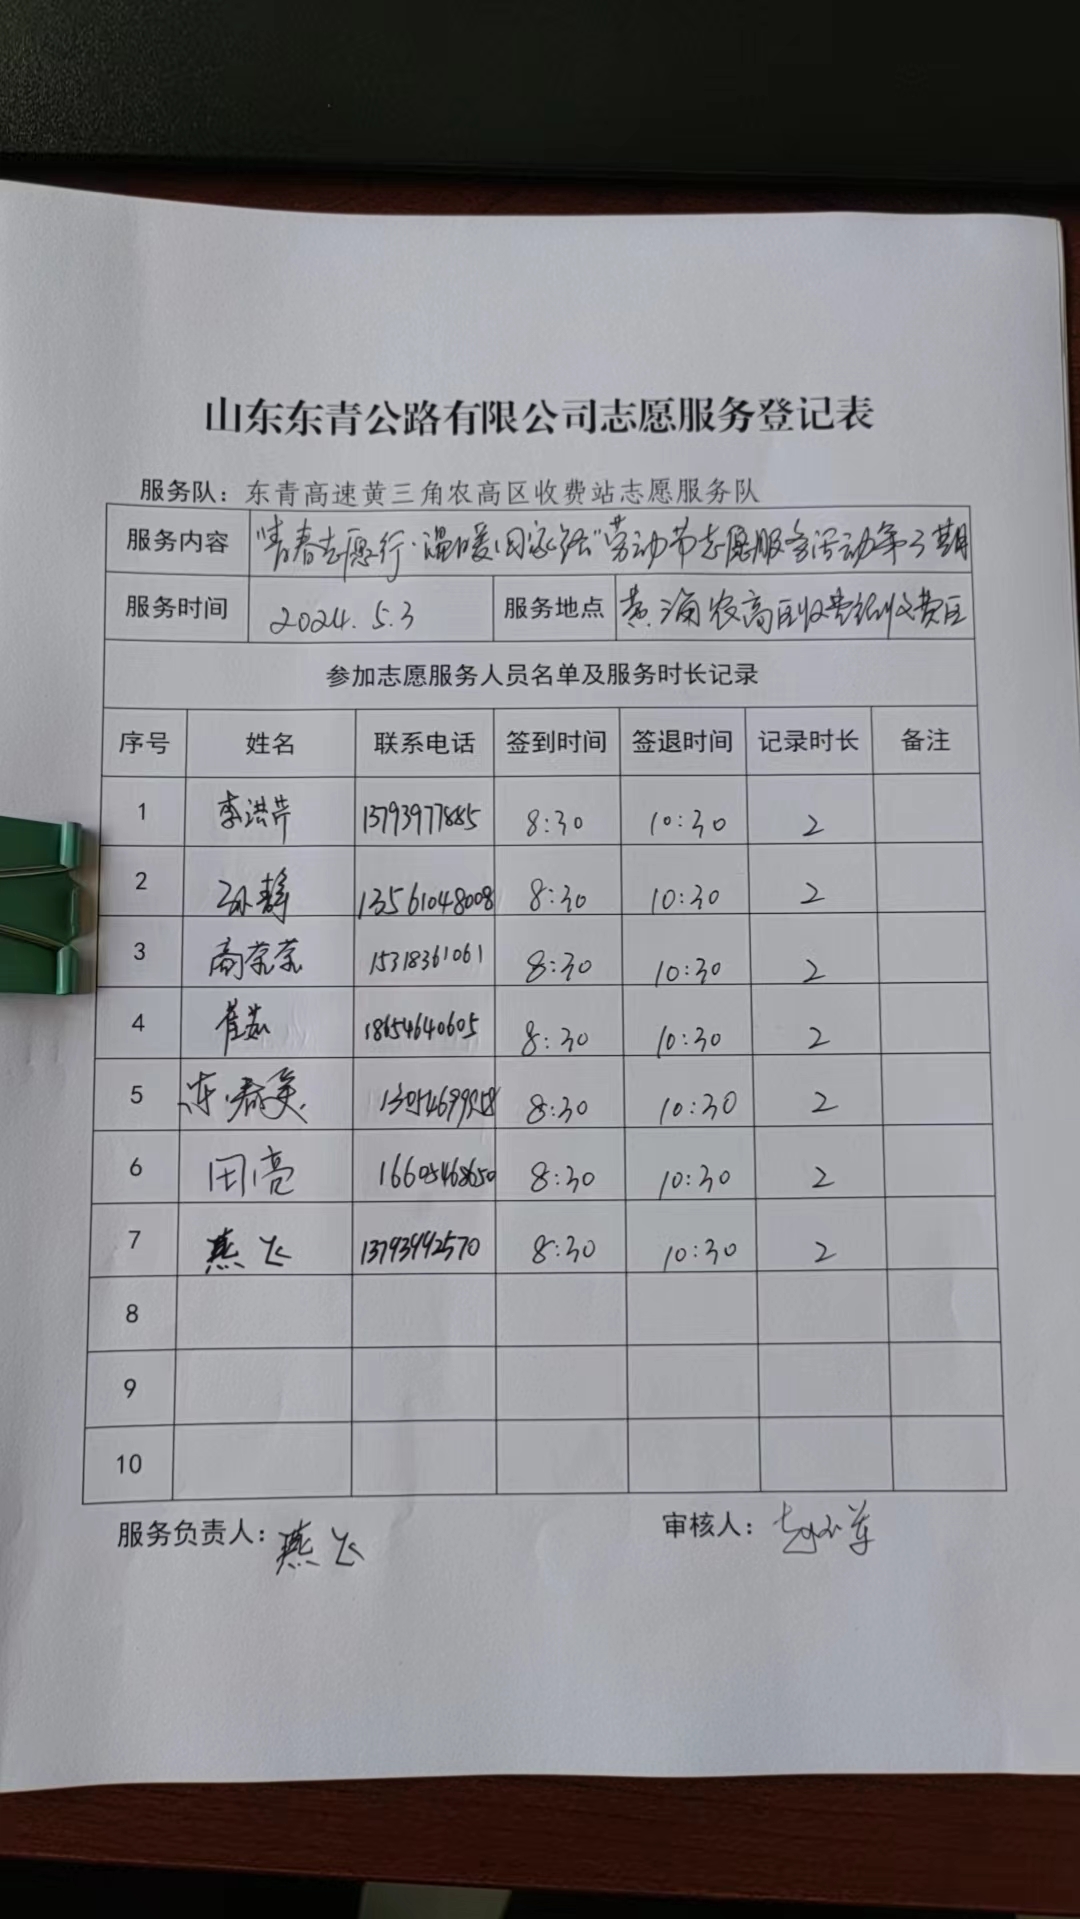 山东东青公路有限公司志愿服务登记表
服务队：东青高速黄三角农高区收费站志愿服务队
服务内容 "青春志愿行·温暖回家路"劳动节志愿服务活动第3期
服务时间 2024.5.3 服务地点 黄三角农高区收费站收费区
参加志愿服务人员名单及服务时长记录
序号 姓名 联系电话 签到时间 签退时间 记录时长 备注
1 李洪芹 13793977885 8:30 10:30 2
2 孙静 13561048008 8:30 10:30 2
3 商荣荣 15318361061 8:30 10:30 2
4 崔茹 18654640605 8:30 10:30 2
5 陈春美 8:30 10:30 2
6 田亮 16605468650 8:30 10:30 2
7 燕飞 13793992570 8:30 10:30 2
8
9
10
服务负责人：燕飞 审核人：